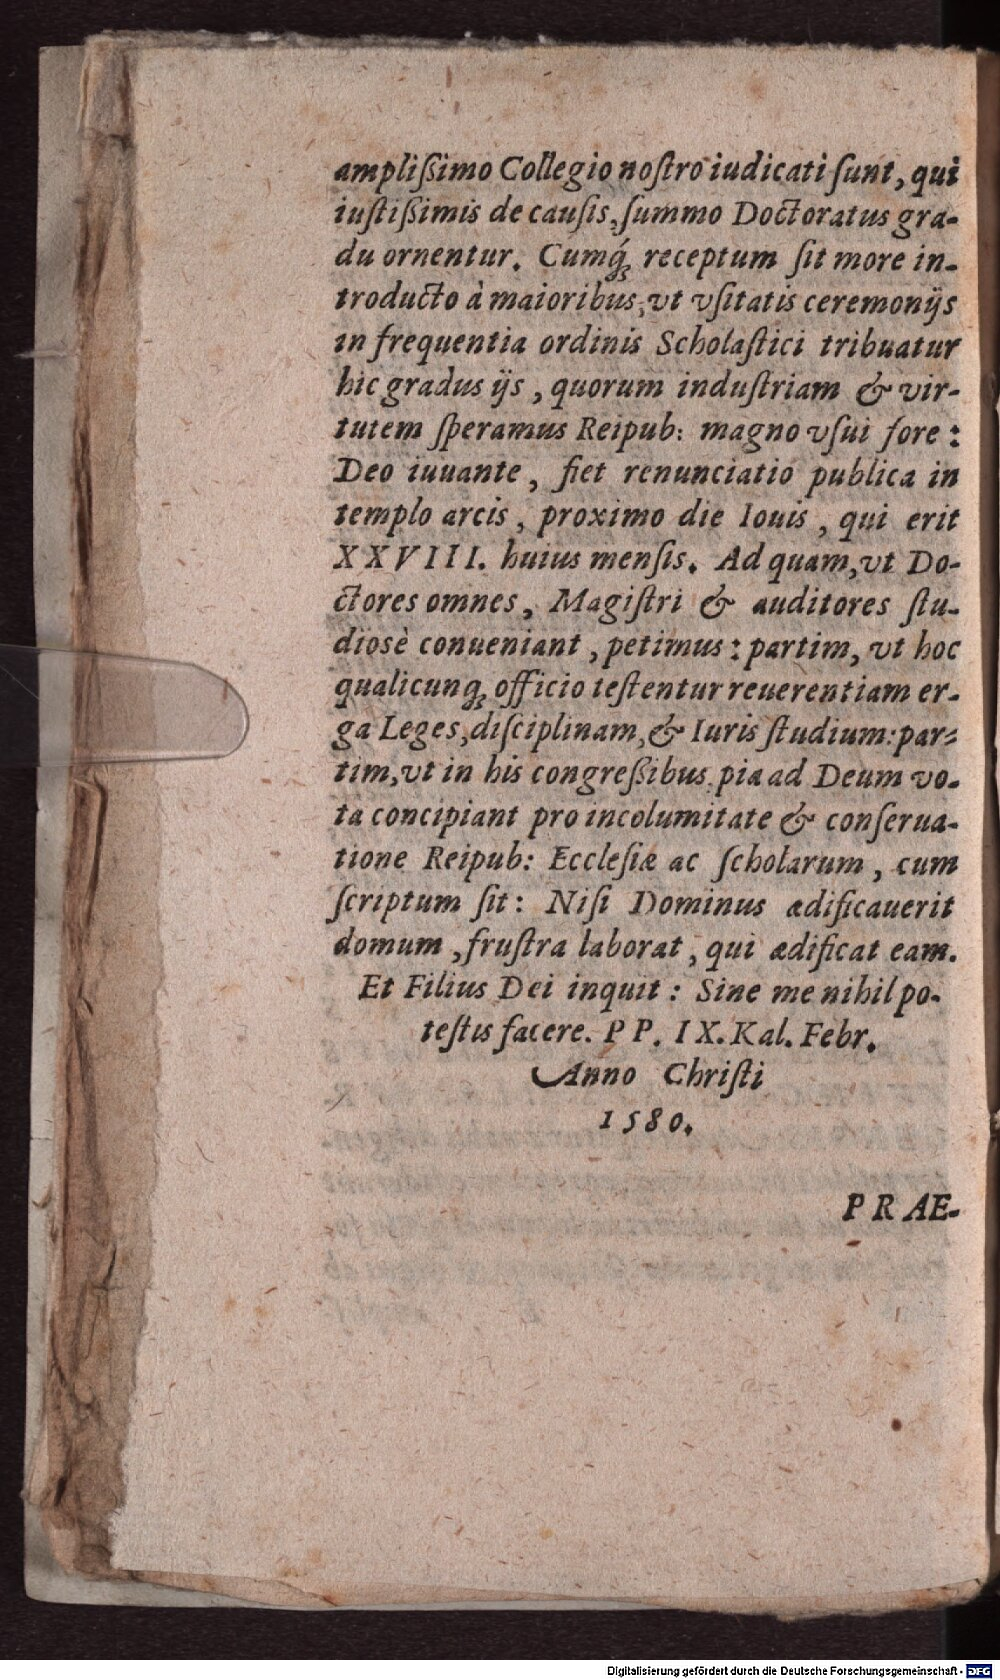 ampliſsimo Collegio noſtro iudicati ſunt, qui
iuſtiſsimis de cauſis, ſummo Doctoratus gra-
du ornentur. Cumq́; receptum ſit more in-
troducto à maioribus, vt vſitatis ceremonijs
in frequentia ordinis Scholaſtici tribuatur
hic gradus ijs, quorum induſtriam & vir-
tutem ſperamus Reipub: magno vſui fore:
Deo iuuante, fiet renunciatio publica in
templo arcis, proximo die Iouis, qui erit
XXVIII. huius menſis. Ad quam, vt Do-
ctores omnes, Magiſtri & auditores ſtu-
diosè conueniant, petimus: partim, vt hoc
qualicunq; officio teſtentur reuerentiam er-
ga Leges, diſciplinam, & Iuris ſtudium: par-
tim, vt in his congreſsibus pia ad Deum vo-
ta concipiant pro incolumitate & conſerua-
tione Reipub: Eccleſiæ ac ſcholarum, cum
ſcriptum ſit: Niſi Dominus ædificauerit
domum, fruſtra laborat, qui ædificat eam.
Et Filius Dei inquit: Sine me nihil po-
teſtis facere. PP. IX. Kal. Febr.
Anno Chriſti
1580.
PRAE-
Digitalisierung gefördert durch die Deutsche Forschungsgemeinschaft - DFG